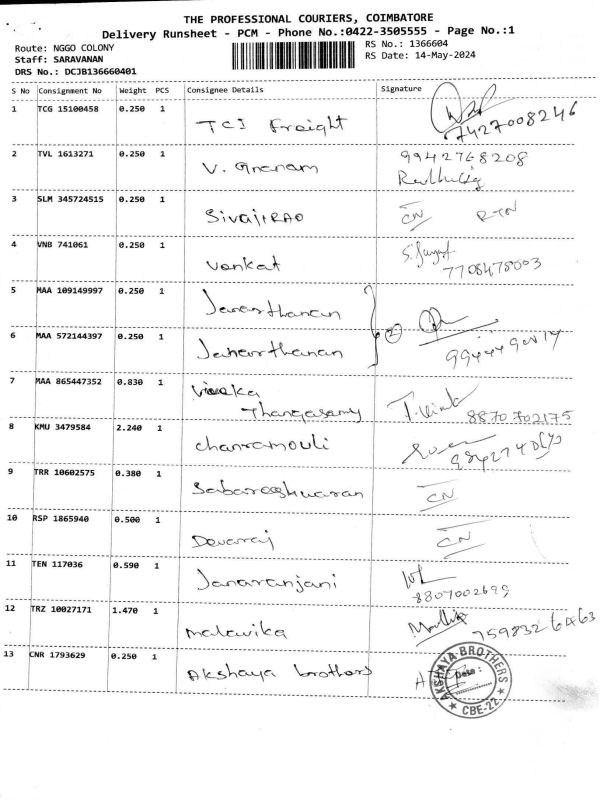 THE PROFESSIONAL COURIERS, COIMBATORE
Delivery Runsheet - PCM - Phone No.:0422-3505555 - Page No.:1
Route: NGGO COLONY
RS No.: 1366604
Staff: SARAVANAN
RS Date: 14-May-2024
DRS No.: DCJB136660401
S No Consignment No Weight PCS Consignee Details Signature
1 TCG 15100458 0.250 1 TCI Freight
7427008246
2 TVL 1613271 0.250 1 V. Gnanam 9942768208
3 SLM 345724515 0.250 1 SivajiRAO CN RTN
4 VNB 741061 0.250 1 Venkat
7708478003
5 MAA 109149997 0.250 1 Janarthanan
2
6 MAA 572144397 0.250 1 Janarthanan
7 MAA 865447352 0.830 1
Thangasamy
8870702175
8 KMU 3479584 2.240 1
9 TRR 10602575 0.380 1 Sabareeshwaran CN
10 RSP 1865940 0.500 1 Devaraj CN
11 TEN 117036 0.590 1 Janaranjani
12 TRZ 10027171 1.470 1 Malavika
7598326463
13 CNR 1793629 0.250 1 Akshaya brothers
AKSHAYA BROTHERS
CBE-22